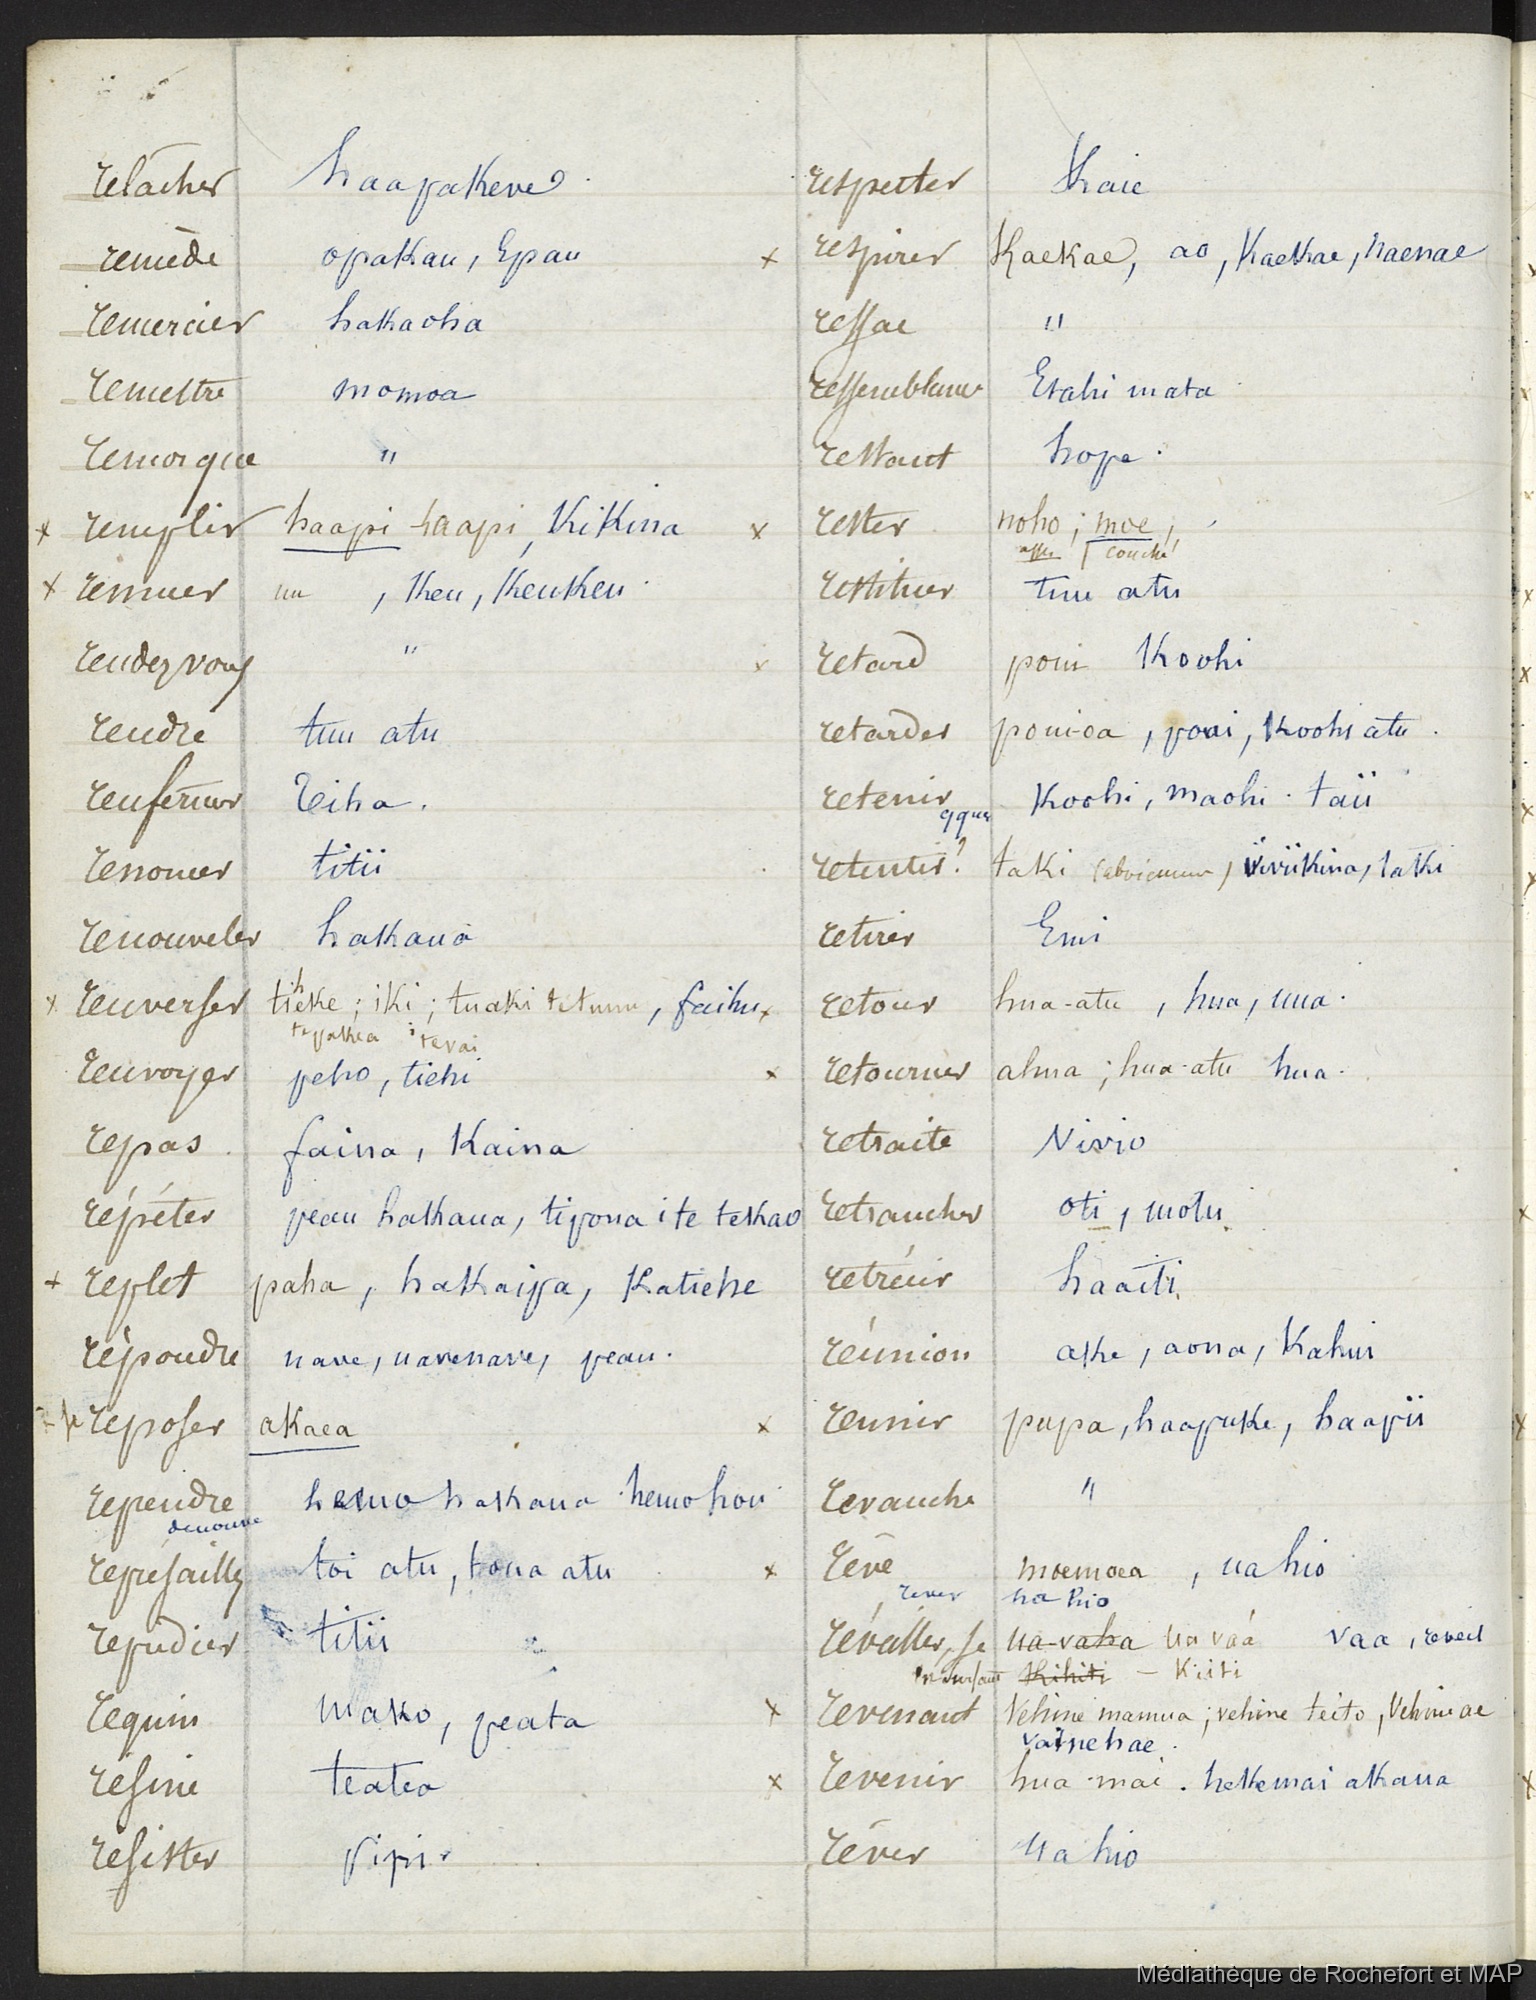 relâcher haapakeve
remède opakau, Epau
remercier hakaoha
remettre momoa
remorque "
x remplir haapi haapi, KiKina
x remuer uu , Keu, KeuKeu
rendez vous "
rendre tuu atu
renfermer
renoncer titii
renouveler hakaua
x renverser tiheke ; iki ; tuaki tutunu, faihu
tepakea tevai
renvoyer peho, tiehi
repas faina, Kaina
répéter peau hakaua, tipona i te tekao
x replet paha, hakaipa, Katiehe
répondre nave, navenave, peau.
x se reposer akaea
rependre hemo hakaua hemo hou
denouve
represailles toi atu, toua atu
repudier titii
requin mako, peata
résine teatea
resister pipi
respecter Kaie
x respirer KaeKae, ao, KaeKae, naenae
ressac "
ressemblance Etahi mata
restant hope.
x rester noho ; moe ;
couché
restituer tuu atu
x retard poui Koohi
retarder poui-oa, poui, Koohi atu.
retenir Koohi, maohi. taii
qque
retentir ? taki vivikina, taki
retirer Emi
x retour hua-atu, hua, uua.
x retourner ahua ; hua-atu hua.
retraite Nivio
retrancher oti, motu
rétrécir haaiti
réunion ake, aona, Kahui
x reunir pupa, haapuke, haapii
revanche "
x rêve moemoea, ua hio
rever ua hio
réveiller, se ua-vaha ua váá vaa, reveil
en sursaut Kihiti – Kiiti
x revenant Vehine mamua ; vehine teito, Vehine ae
vainehae.
x revenir hua-mai. hekemai akaua
rêver ua hio
Médiathèque de Rochefort et MAP